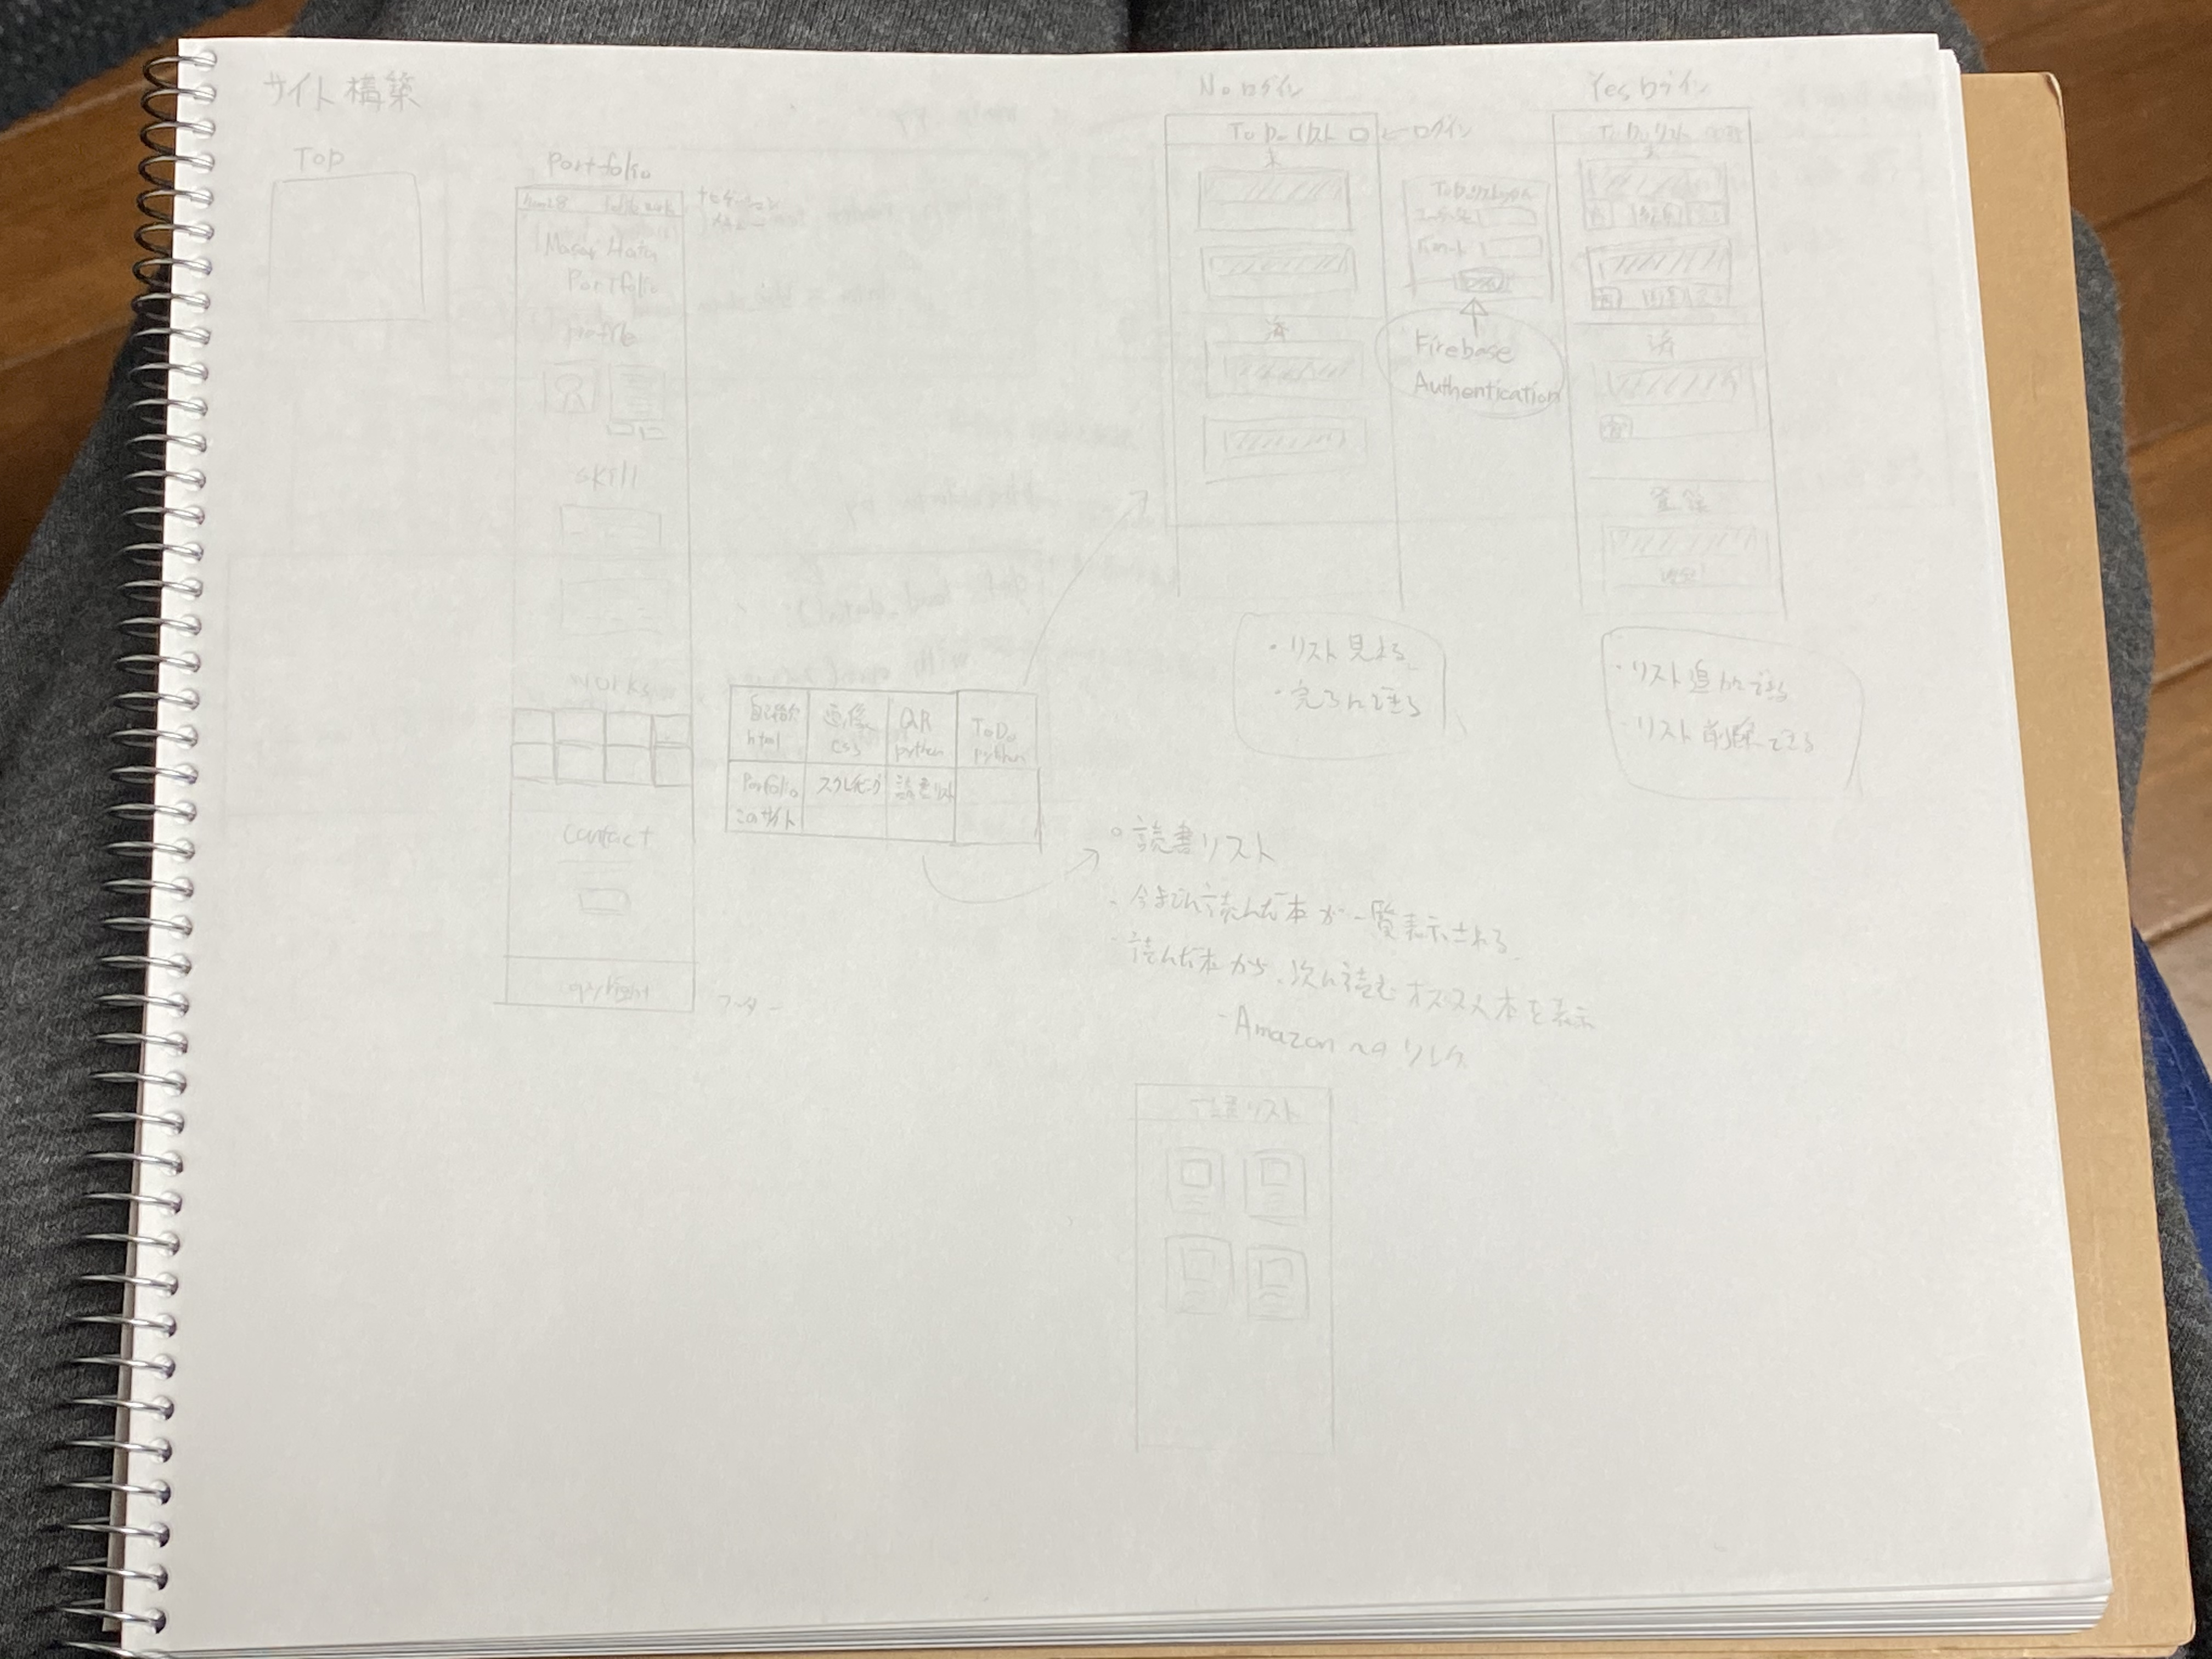 サイト構築
TOP
Portfolio
ナビゲーション
メニュー
Portfolio
profile
skill
works
contact
copyright
フッター
自己紹介
html
画像
css
QR
python
ToDo
python
Porfolio
このサイト
スクレイピング
読書リスト
Noログイン
ToDoリスト
←ログイン
未
済
Firebase
Authentication
Yesログイン
ToDoリスト
未
済
登録
・リスト見れる
・完了にできる
・リスト追加できる
・リスト削除できる
○読書リスト
・今までに読んだ本が一覧表示される
・読んだ本から、次に読むオススメ本を表示
-Amazonへのリンク
読書リスト